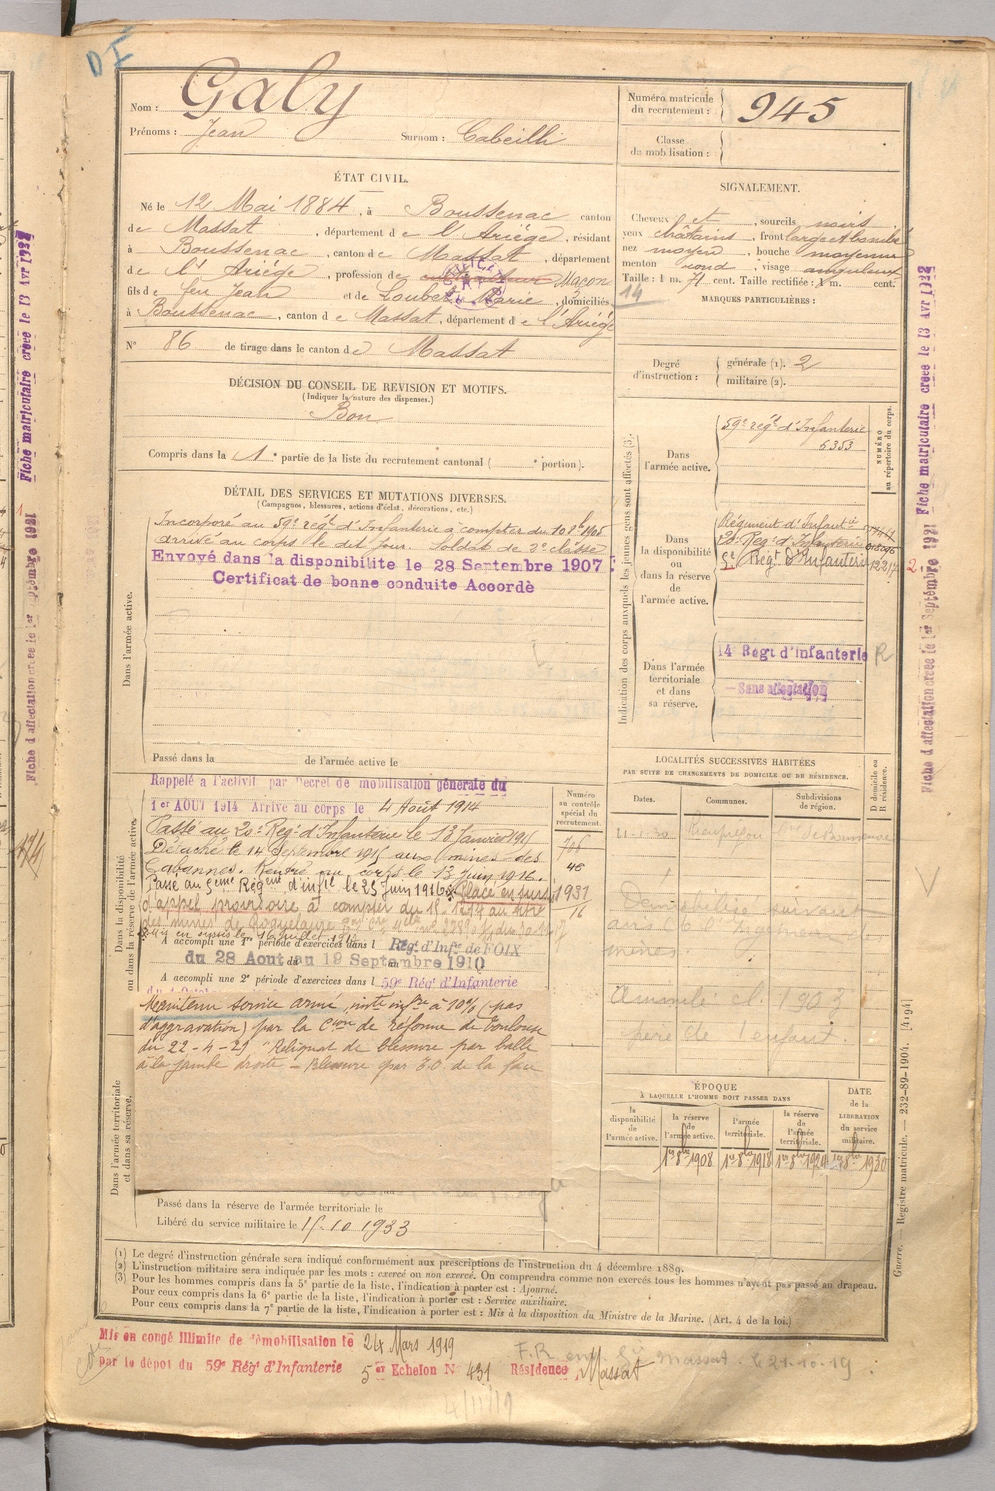 D I
Nom : Galy
Prénoms : Jean Surnom : Cabeilli
Numéro matricule du recrutement : 945
Classe de mobilisation :
ÉTAT CIVIL.
Né le 12 Mai 1884, à Boussenac canton
de Massat, département de l'Ariège, résidant
à Boussenac, canton de Massat, département
de l'Ariège, profession de Maçon
fils de feu Jean et de Loubet Marie, domiciliés
à Boussenac, canton de Massat, département de l'Ariège
N° 86 de tirage dans le canton de Massat
SIGNALEMENT.
Cheveux et, sourcils noirs
yeux châtains, front large et bombé
nez moyen, bouche moyenne
menton rond, visage anguleux
Taille : 1 m. 71 cent. Taille rectifiée : 1 m. cent.
14
MARQUES PARTICULIÈRES :
Degré d'instruction : générale (1). 2
militaire (2).
DÉCISION DU CONSEIL DE REVISION ET MOTIFS.
(Indiquer la nature des dispenses.)
Bon
Compris dans la 1e partie de la liste du recrutement cantonal ( e portion).
DÉTAIL DES SERVICES ET MUTATIONS DIVERSES.
(Campagnes, blessures, actions d'éclat, décorations, etc.)
Dans l'armée active.
Incorporé au 59e rég.t d'Infanterie à compter du 10 8bre 1905
arrivé au corps le dit jour. Soldat de 2e classe
Envoyé dans la disponibilite le 28 Septembre 1907
Certificat de bonne conduite Accordé
Passé dans la de l'armée active le
Indication des corps auxquels les jeunes gens sont affectés (3).
NUMÉRO au répertoire du corps.
Dans l'armée active.
59e rég.t d'Infanterie
6353
Dans la disponibilité ou dans la réserve de l'armée active.
Régiment d'Infant.ie
20e Reg.t d'Infanterie
5e Rég.t d'Infanterie
Dans l'armée territoriale et dans sa réserve.
14e Régt d'Infanterie R
Sans affectation
Dans la disponibilité ou dans la réserve de l'armée active.
Rappelé a l'activité par Decret de mobilisation générale du
1er AOUT 1914 Arrive au corps le 4 Août 1914
Passé au 20e Reg.t d'Infanterie le 13 Janvier 1915
Détaché le 14 Septembre 1915 aux mines des
Cabannes. Rentré au corps le 13 Juin 1916.
Passe au 5eme Régment d'infie le 25 Juin 1916 Placé en sursis
d'appel provisoire à compter du
A accompli une 1re période d'exercices dans l Régt d'Infie de FOIX
du 28 Aout au 19 Septembre 1910
A accompli une 2e période d'exercices dans l 59e Régt d'Infanterie
Maintenu service armé, invte infre à 10% (pas
d'aggravation) par la Cion de réforme de Toulouse
du 22-4-29 "Reliquat de blessure par balle
à la jambe droite - Blessure par E.O. de la face
Numéro au contrôle spécial du recrutement.
706
48
1937
16
LOCALITÉS SUCCESSIVES HABITÉES
PAR SUITE DE CHANGEMENTS DE DOMICILE OU DE RÉSIDENCE.
Dates. Communes. Subdivisions de région. D domicile ou R résidence.
Démobilisé suivant
mines
Assimilé cl. 1903
père de 1 enfant.
ÉPOQUE
À LAQUELLE L'HOMME DOIT PASSER DANS
la disponibilité de l'armée active.
la réserve de l'armée active.
l'armée territoriale.
la réserve de l'armée territoriale.
DATE de la LIBÉRATION du service militaire.
1er 8bre 1908 1er 8bre 1918 1er 8bre 1924 1er 8bre 1930
Dans l'armée territoriale et dans sa réserve.
Passé dans la réserve de l'armée territoriale le
Libéré du service militaire le 15.10 1933
(1) Le degré d'instruction générale sera indiqué conformément aux prescriptions de l'instruction du 4 décembre 1889.
(2) L'instruction militaire sera indiquée par les mots : exercé ou non exercé. On comprendra comme non exercés tous les hommes n'ayant pas passé au drapeau.
(3) Pour les hommes compris dans la 5e partie de la liste, l'indication à porter est : Ajourné.
Pour ceux compris dans la 6e partie de la liste, l'indication à porter est : Service auxiliaire.
Pour ceux compris dans la 7e partie de la liste, l'indication à porter est : Mis à la disposition du Ministre de la Marine. (Art. 4 de la loi.)
Mis en congé illimite de démobilisation le 24 Mars 1919
par le dépot du 59e Régt d'Infanterie 5er Echelon N° 431 Résidence Massat
F.R. Massat. le 21-10-19.
4/11/19
Guerre. — Registre matricule. — 232-89-1904. [4194]
Fiche d'affectation creee le 1er Septembre 1921 Fiche matriculaire creee le 13 Avr 1922
Fiche d'affectation creee le 1er Septembre 1921 Fiche matriculaire creee le 13 Avr 1922